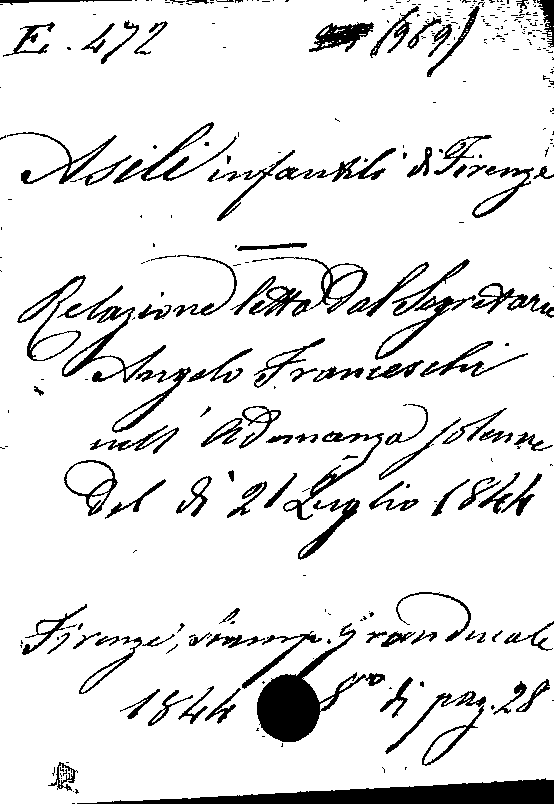 E. 472 (969)
Asili infantili di Firenze
Relazione letta dal Segretario
Angelo Franceschi
nell' Adunanza solenne
del dì 21 Luglio 1844
Firenze, stamp. Granducale
1844 8vo di pag. 28